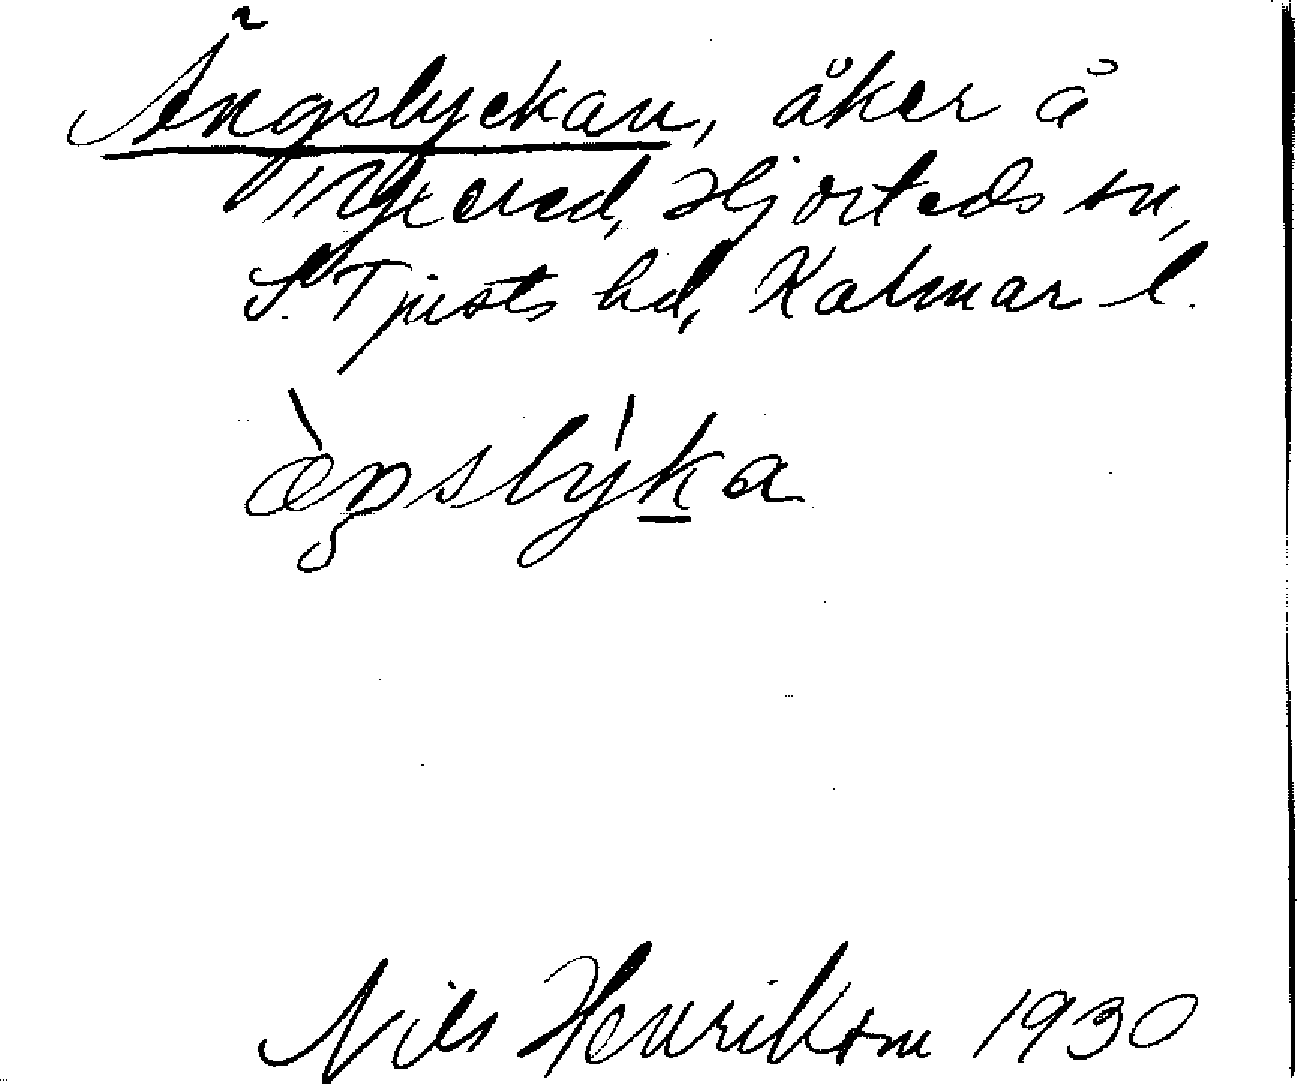 Ängslyckan, åker å
Hjorteds sn,
S. Tjusts hd, Kalmar l.
æ̀ŋslýka
Nils Henrikson 1930